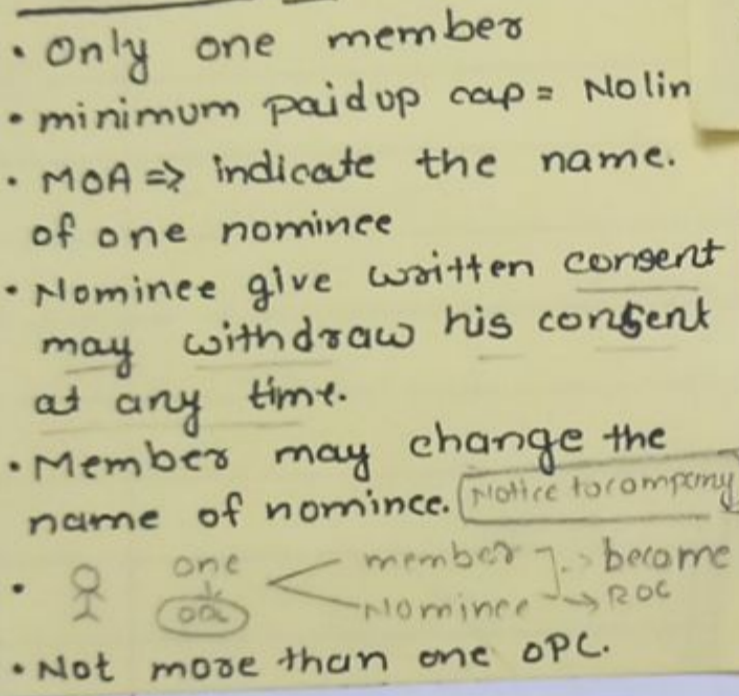 • Only one member
• minimum paid up cap = No lin
• MOA => indicate the name.
of one nominee
• Nominee give written consent
may withdraw his consent
at any time.
• Member may change the
name of nominee. Notice to company
• one member become
Nominee → ROC
• Not more than one OPC.